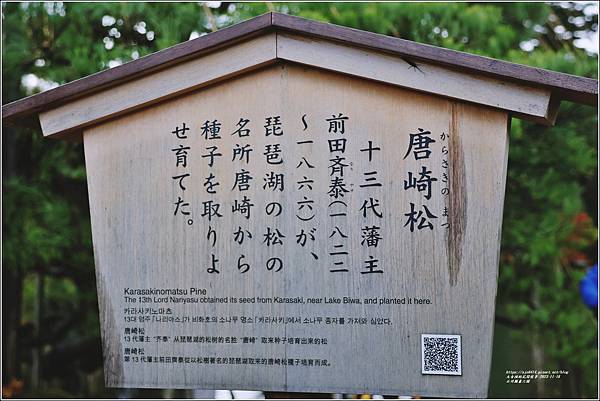 唐崎松
からさきの まつ
十三代藩主
前田斉泰(一八二二
なり やす
～一八六六)が、
琵琶湖の松の
名所唐崎から
種子を取りよ
せ育てた。
Karasakinomatsu Pine
The 13th Lord Nariyasu obtained its seed from Karasaki, near Lake Biwa, and planted it here.
카라사키노마츠
13대 영주 「나리야스」가 비와호의 소나무 명소 「카라사키」에서 소나무 종자를 가져와 심었다.
唐崎松
13 代藩主 “齐泰” 从琵琶湖的松树的名胜 “唐崎” 取来种子培育出来的松
唐崎松
第 13 代藩主前田齊泰從以松樹著名的琵琶湖取來的唐崎松種子培育而成。